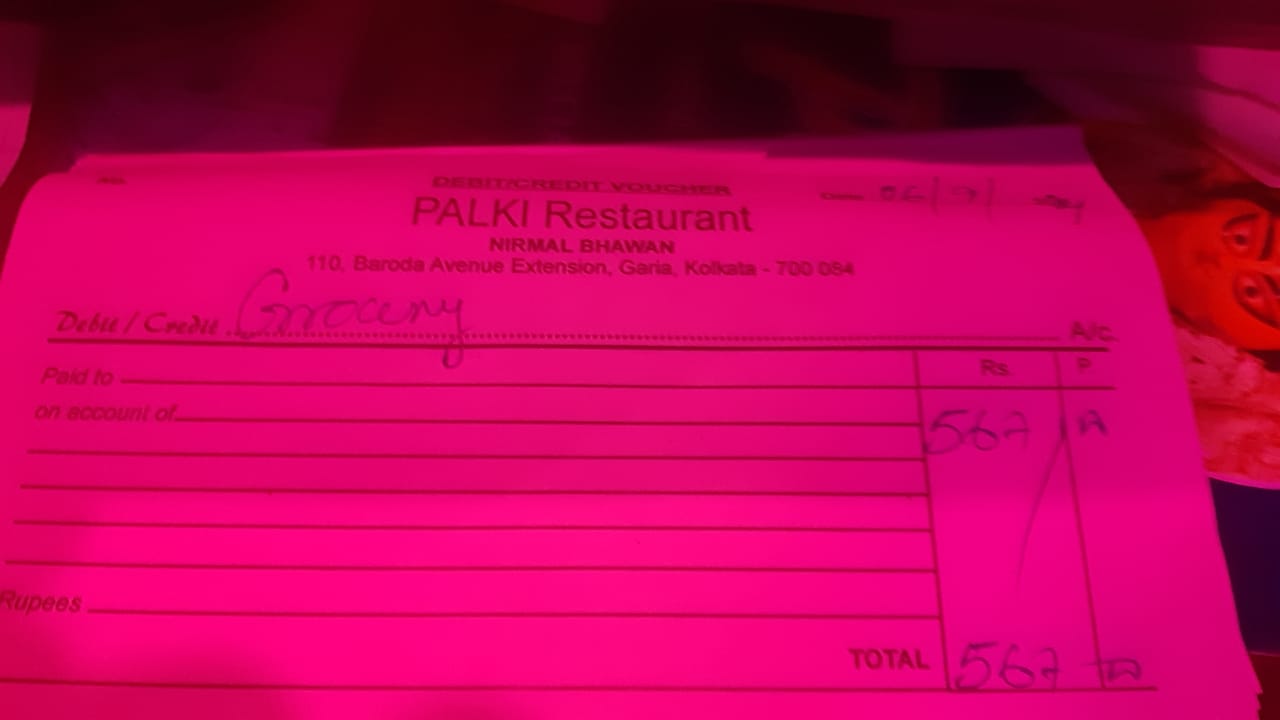 No.
DEBIT/CREDIT VOUCHER
PALKI Restaurant
Date 06/9/
NIRMAL BHAWAN
110, Baroda Avenue Extension, Garia, Kolkata - 700 084
Debit / Credit Grocery A/c.
Rs. P.
Paid to
on account of
567
Rupees
TOTAL 567